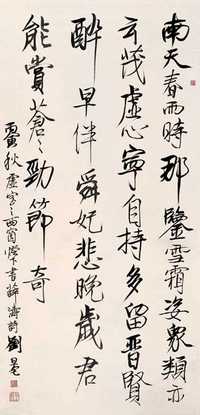 南天春雨時那鑒雪霜姿眾類亦
云茂虛心寧自持多留晉賢
醉早伴舜妃悲晚歲君
能賞蒼々勁節奇
丙寅秋 書薛濤詩 劉